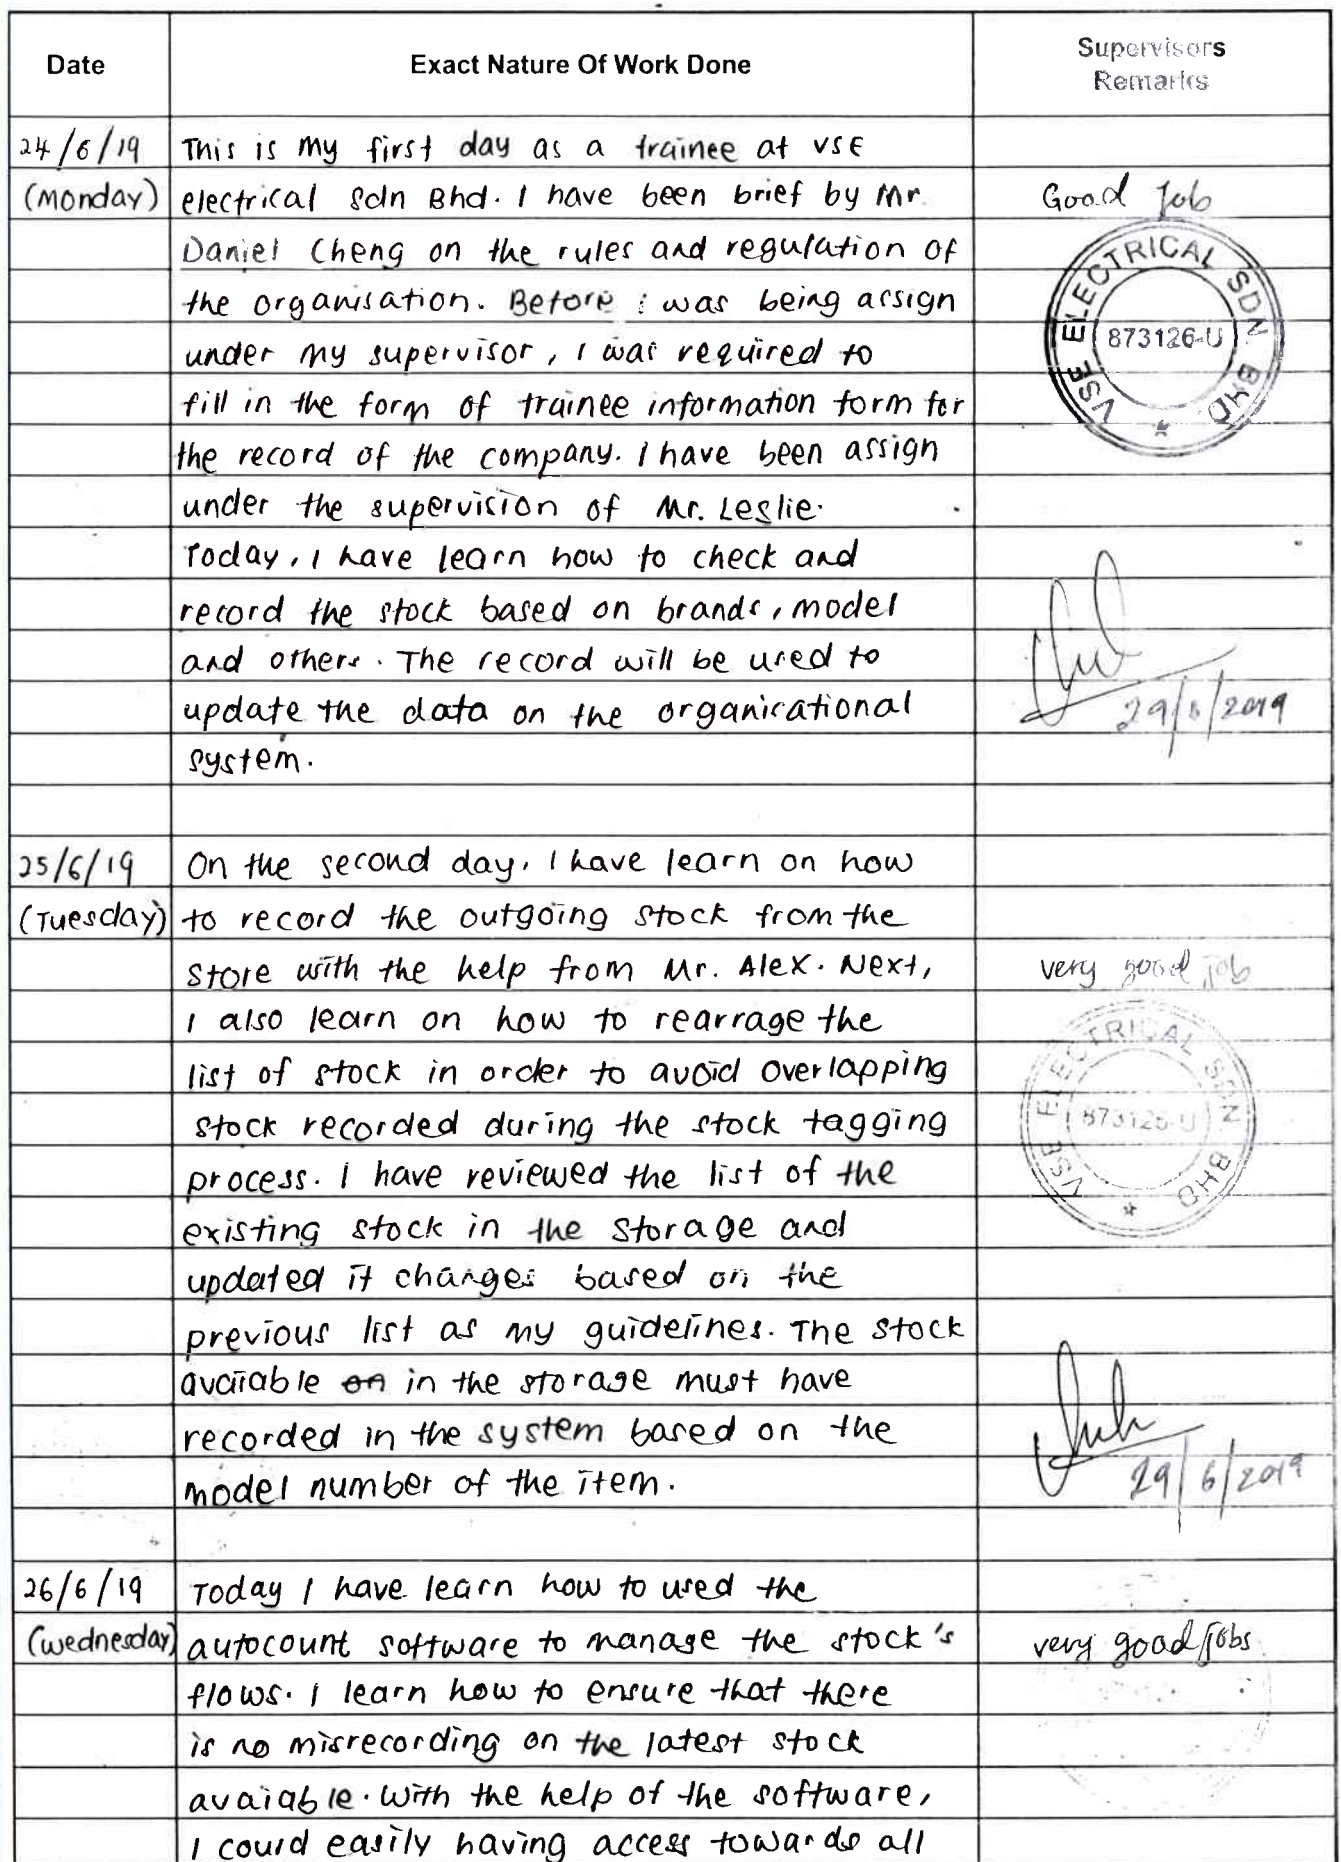 Date Exact Nature Of Work Done Supervisors
Remarks
24/6/19 This is my first day as a trainee at VSE
(Monday) electrical Sdn Bhd. I have been brief by Mr. Good Job
Daniel Cheng on the rules and regulation of
the organisation. Before i was being assign
under my supervisor, I was required to
fill in the form of trainee information form for
the record of the company. I have been assign
under the supervision of Mr. Leslie.
VSE ELECTRICAL SDN. BHD.
873126-U
Today, I have learn how to check and
record the stock based on brands, model
and others. The record will be used to
update the data on the organisational 29/6/2019
system.
25/6/19 On the second day, I have learn on how
(Tuesday) to record the outgoing stock from the
store with the help from Mr. Alex. Next, very good job
I also learn on how to rearrage the
list of stock in order to avoid overlapping
stock recorded during the stock tagging
process. I have reviewed the list of the
VSE ELECTRICAL SDN. BHD
873126-U
existing stock in the storage and
updated it changes based on the
previous list as my guidelines. The stock
avaiable on in the storage must have
recorded in the system based on the
model number of the item. 29/6/2019
26/6/19 Today I have learn how to used the
(Wednesday) autocount software to manage the stock's very good jobs
flows. I learn how to ensure that there
is no misrecording on the latest stock
avaiable. With the help of the software,
I could easily having access towards all